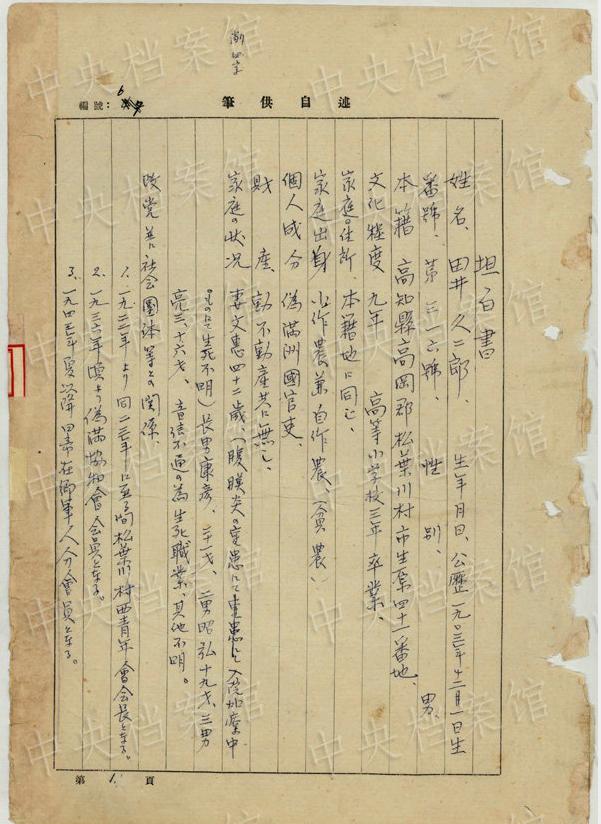 述自供筆
編號：
坦白書
姓名、田井久二郎、 生年月日、公歷一九〇三年十二月一日生
番號、第三一六號、 性別、 男、
本籍 高知縣高岡郡松葉川村市生原四十一番地、
文化程度 九年 高等小学校三年卒業、
家庭の住所、本籍地に同じ、
家庭出身 小作農兼自作農、(貧農、)
個人成分 偽満洲國官吏、
財産、動不動産共に無し、
家庭の状況 妻文恵四十二歳、(腹膜炎の重患にて入院加療中
のもにて生死不明)長男康彦、二十一才、二男昭弘十九才、三男
亮三、十六才、音信不通の為生死職業、其他不明。
政党並に社会團体等との関係、
1. 一九二二年より同二三年に至る間松葉川村西青年會会長となる。
2. 一九三六年頃より偽満協和會会員となる。
3. 一九四三年夏以降日帝在郷軍人分會員となる。
第 1. 頁
中央档案馆